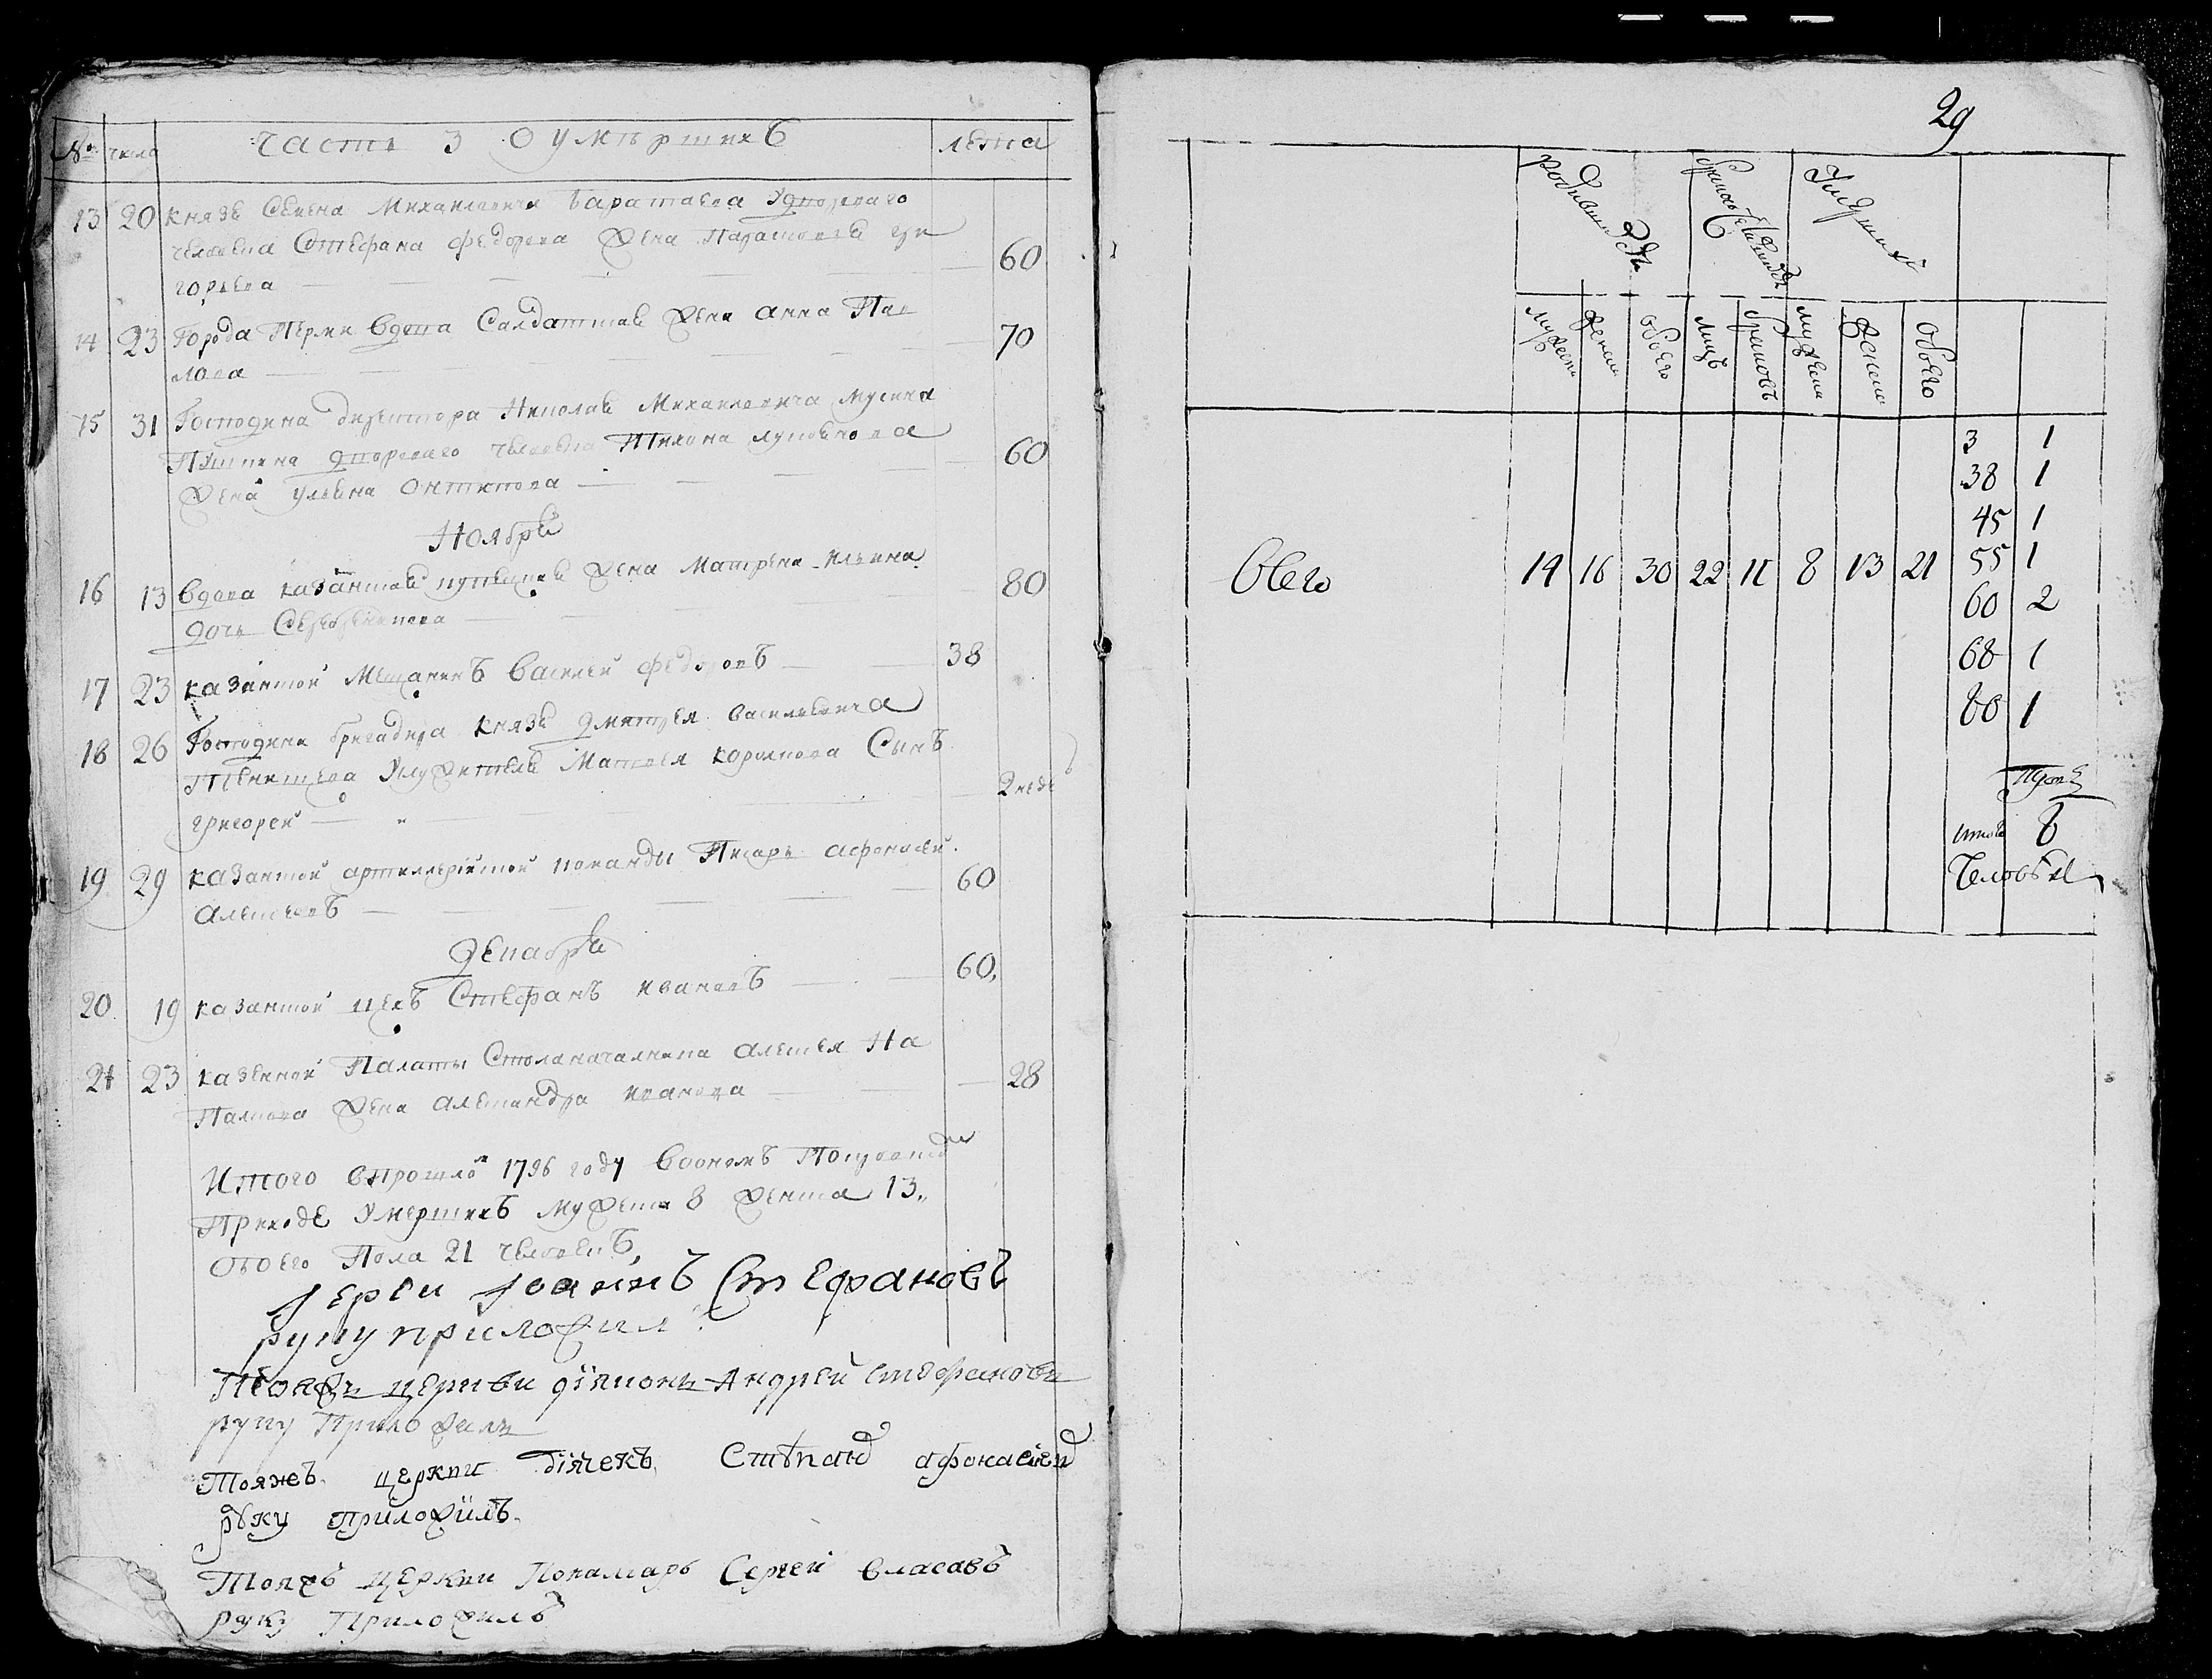 № число Часть 3 О умѣршихъ лѣта
13 20 князя Семена Михаиловича Баратаева Удворнаго
человека Стефана Федорова жена Парасковья гри
горьева 60
14 23 Города Перми вдова Салдатская жена Анна Пав
лова 70
15 31 Господина директора Николая Михаиловича Мусина
Пушкина дворнаго человека Тихона
жена Ульяна Онтипова 60
Ноября
16 13 вдова казанская купецкая жена Матрена Ильина
дочь Серебреникова 80
17 23 казанской Мещанинъ Василей Федоровъ 38
18 26 Господина бригадира князя Дмитрея Васильевича
Тенишева Услужителя Матвея Сынъ
григорей 2 неде
19 29 казанской артиллерїйской команды Писарь Афонасей
Алексеевъ 60
Декабря
20 19 казанской цехъ Стефанъ Ивановъ 60,
21 23 казенной Палаты Столаначалника Алексея На
жена Александра Иванова 28
Итого впрошлом 1796 году воономъ
Приходе Умершихъ мужеска 8 женска 13,,
Обоего Пола 21 человекъ,
Іереи Іоаннъ Стефановъ
руку приложил
Тояжъ церкви дїяконъ Андрей Стефановъ
руку Приложилъ
Тояжеъ церкви дїячекъ Стѣпанъ афонасиевъ
руку приложилъ
Тояжъ церкви Понамарь Сергей власавъ
руку Приложилъ
29
мужеска женска обоего лицъ браковъ мужеска женска обоего
3 1
38 1
45 1
Всего 14 16 30 22 11 8 13 21 55 1
60 2
68 1
80 1
итого 8
Человѣкъ